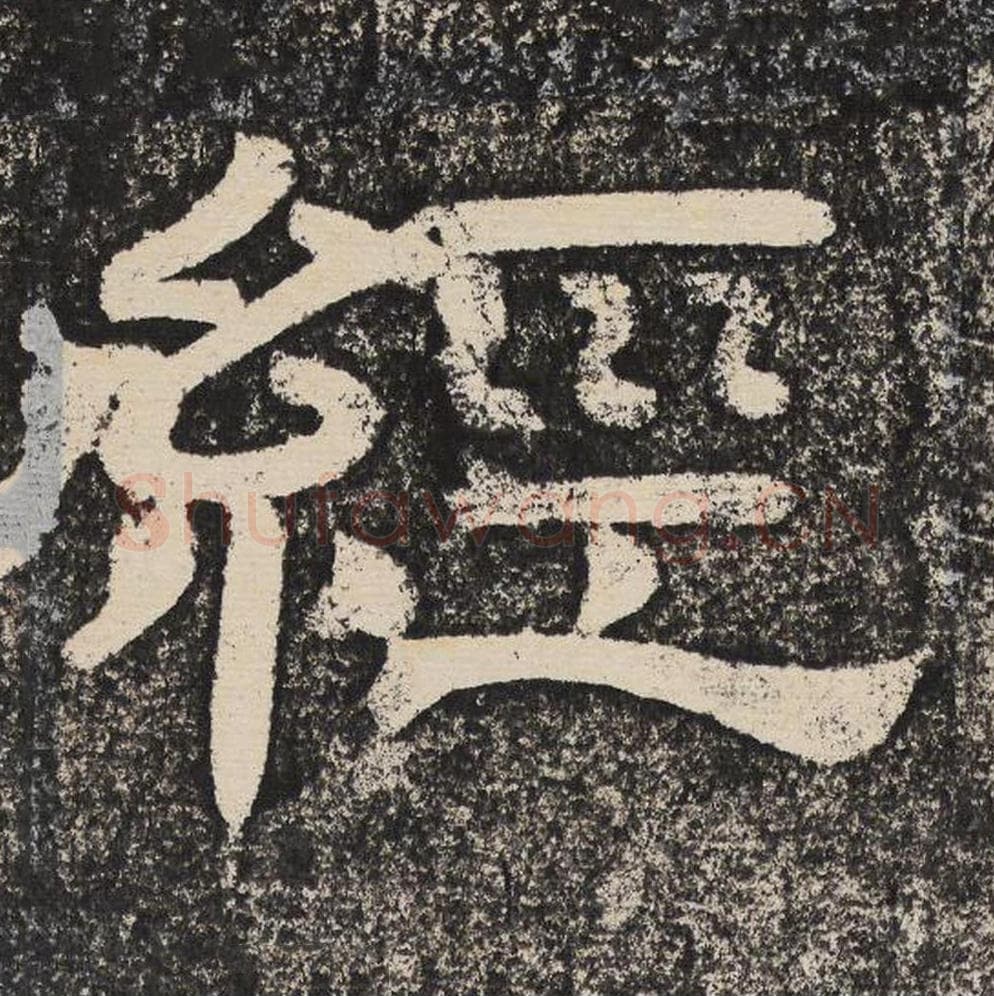 經
Shufawang.CN